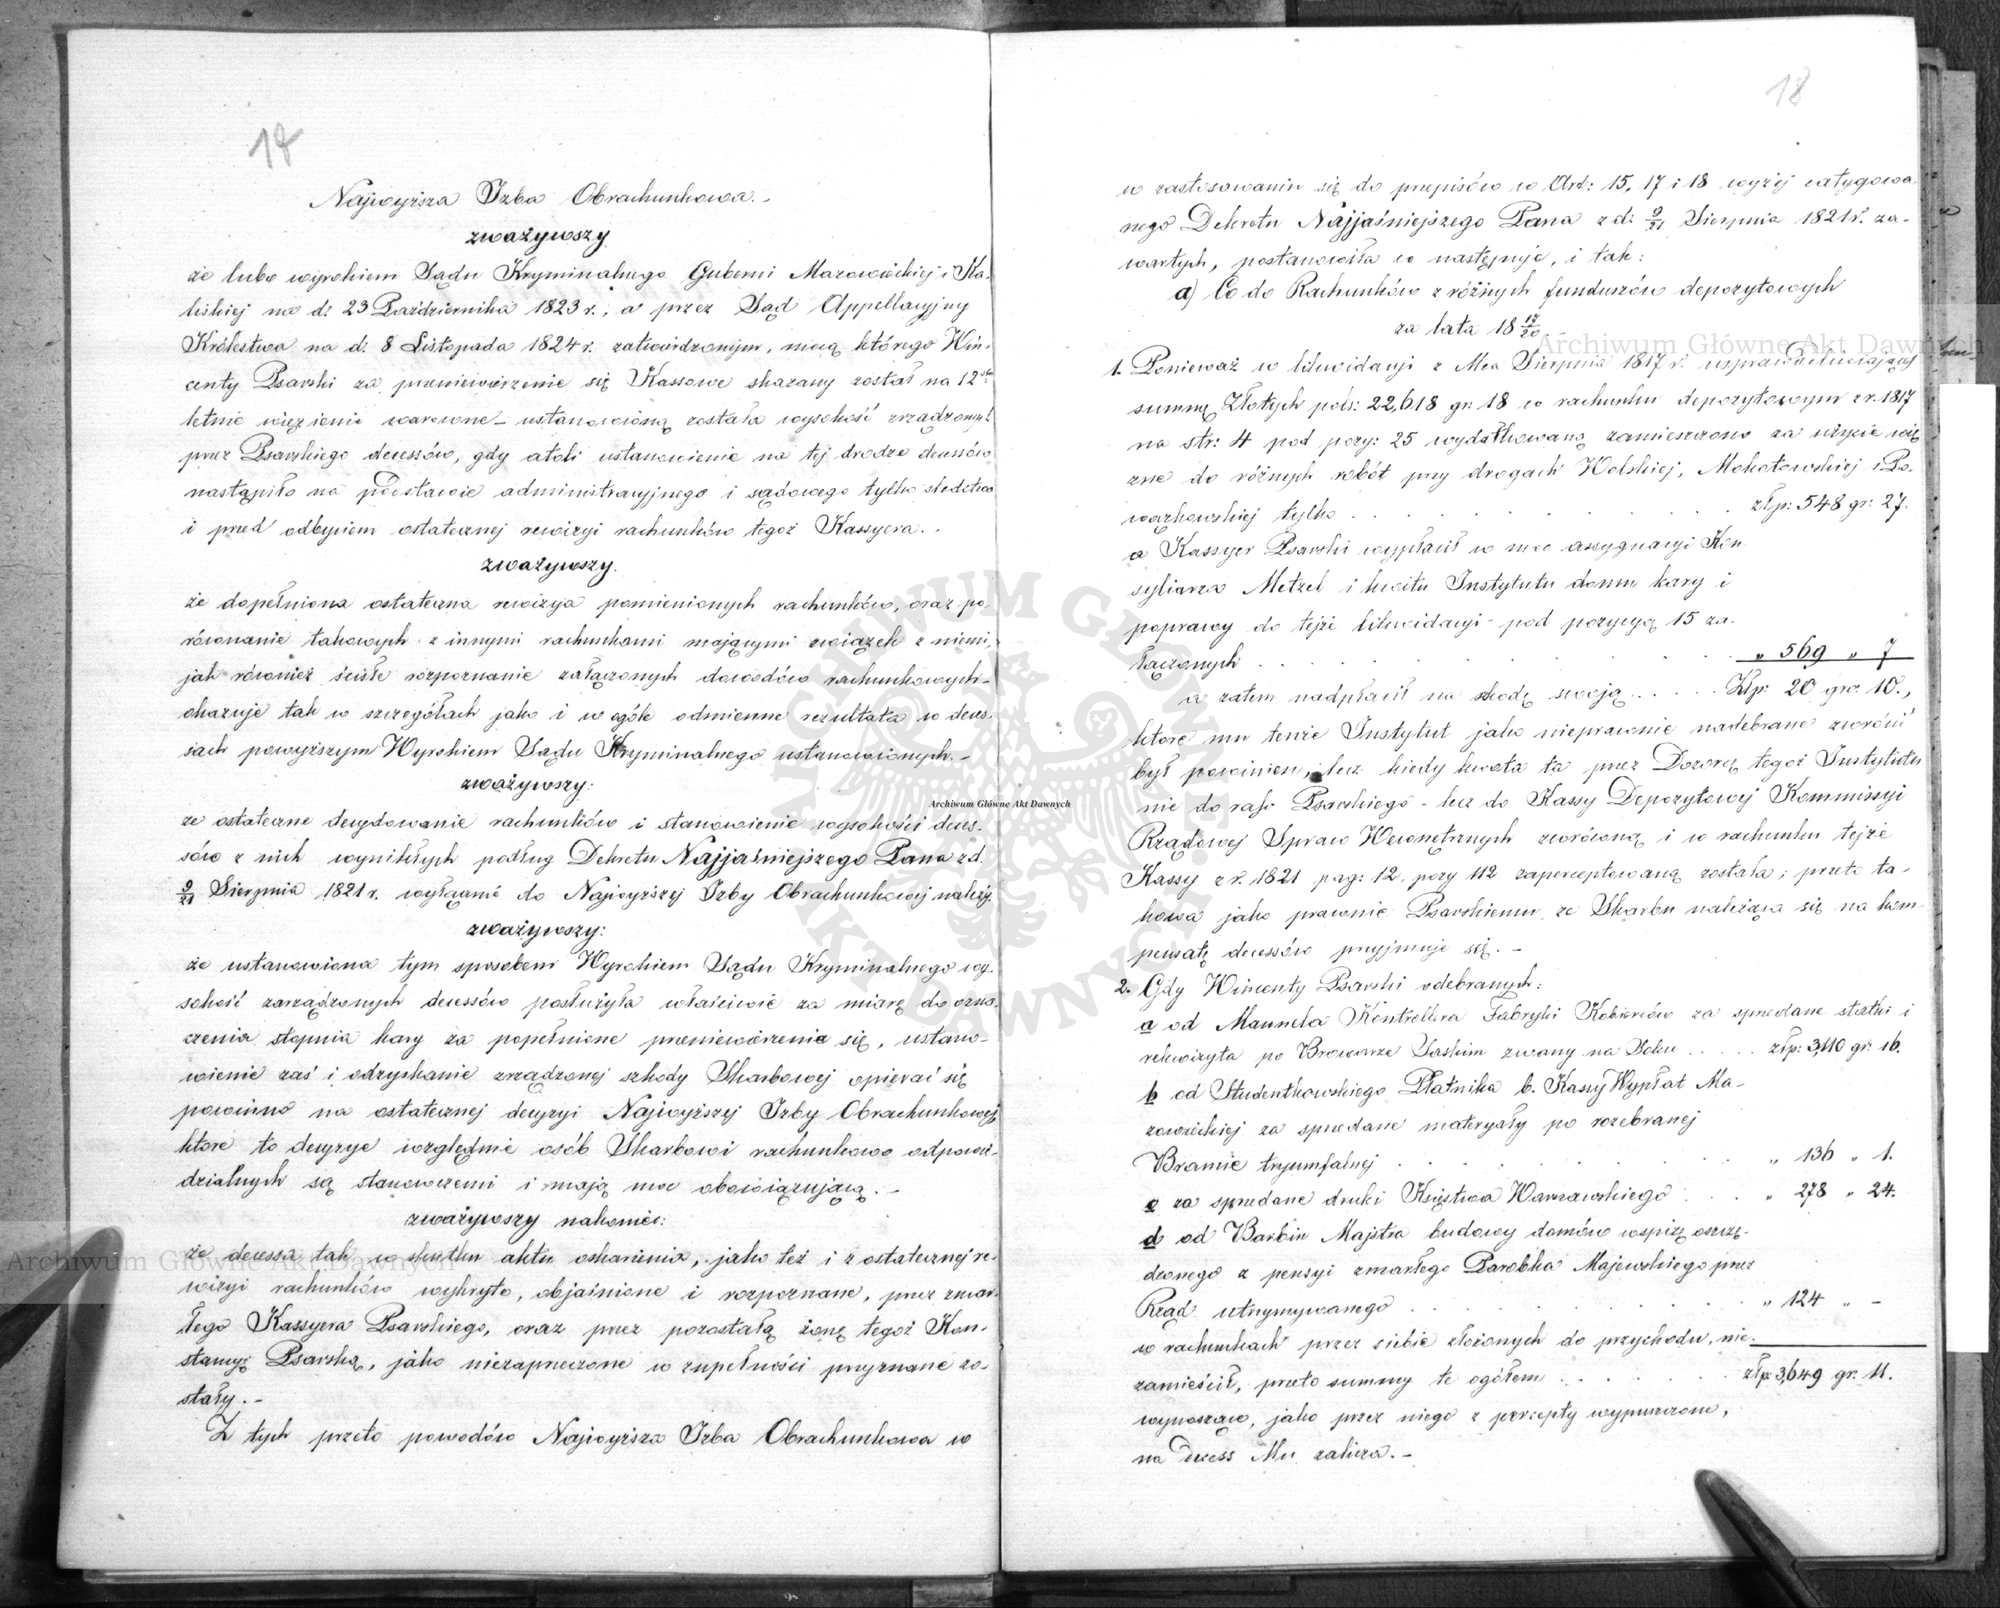 17
Najwyższa Izba Obrachunkowa.-
zważywszy
że lubo wyrokiem Sądu Kryminalnego Guberni Mazowieckiej i Ka-
liskiej na d: 23 Października 1823 r., a przez Sąd Appellacyjny
Królestwa na d: 8 Listopada 1824 r. zatwierdzonym, mocą którego Win-
centy Psarski za przeniewierzenie się Kassowe skazany został na 12sto
letnie więzienie warowne - ustanowioną została wysokość zrządzonych
przez Psarskiego decessów, gdy atoli ustanowienie na tej drodze decessów
nastąpiło na podstawie administracyjnego i sądowego tylko śledztwa
i przed odbyciem ostatecznej rewizyi rachunków tegoż Kassyera.-
zważywszy.
że dopełniona ostateczna rewizya pomienionych rachunków, oraz po-
równanie takowych z innymi rachunkami mającymi związek z niemi,
jak również ścisłe rozpoznanie załączonych dowodów rachunkowych -
okazuje tak w szczegółach jako i w ogóle odmienne rezultata w deces-
sach powyższym Wyrokiem Sądu Kryminalnego ustanowionych.-
zważywszy:
że ostateczne decydowanie rachunków i stanowienie wysokości deces-
sów z nich wynikłych podług Dekretu Najjaśniejszego Pana z d.
9/21 Sierpnia 1821 r. wyłącznie do Najwyższej Izby Obrachunkowej należy.
zważywszy:
że ustanowiona tym sposobem Wyrokiem Sądu Kryminalnego wy-
sokość zarządzonych decessów posłużyła właściwie za miarę do ozna-
czenia stopnia kary za popełnione przeniewierzenie się, ustano-
wienie zaś i odzyskanie zrządzonej szkody Skarbowej opierać się
powinno na ostatecznej decyzyi Najwyższej Izby Obrachunkowej,
które to decyzye względnie osób Skarbowi rachunkowo odpowie-
dzialnych są stanowczemi i mają moc obowiązującą.-
zważywszy nakoniec:
że decessa tak w skutku aktu oskarżenia, jako też i z ostatecznej re-
wizyi rachunków wykryte, objaśnione i rozpoznane, przez zmar-
łego Kassyera Psarskiego, oraz przez pozostałą żonę tegoż Kon-
stancyę Psarską, jako niezaprzeczone w zupełności przyznane zo-
stały.-
Z tych przeto powodów Najwyższa Izba Obrachunkowa w
18
w zastosowaniu się do przepisów w Art: 15, 17 i 18 wyżej całygowa
nego Dekretu Najjaśniejszego Pana z d: 9/21 Sierpnia 1821 r. za-
wartych, postanowiła co następuje, i tak:
a) Co do Rachunków z różnych funduszów depozytowych
za lata 18 17/20
1. Ponieważ w likwidacyi z Mca Sierpnia 1817 r. usprawiedliwiającej
summę Złotych pols: 22,618 gr: 18 w rachunku depozytowym z r. 1817
na str: 4 pod pozy: 25 wydatkowaną zamieszczono za użycie wię
zne do różnych robót przy drogach Wolskiej, Mokotowskiej i Po-
wązkowskiej tylko . . . złp: 548 gr: 27.
a Kassyer Psarski wypłacił w moc assygnacyi Kon-
syliarza Metzel i kwitu Instytutu domu kary i
poprawy do tejże likwidacyi - pod pozycyą 15 za-
łączonych . . . „ 569 „ 7
a zatem nadpłacił na szkodę swoją . . . . . Złp: 20 gro: 10.,
które mu tenże Instytut jako nieprawnie nadebrane zwrócić
był powinien, lecz kiedy kwota ta przez Dozorcę tegoż Instytutu
nie do rąk Psarskiego - lecz do Kassy Depozytowej Kommissyi
Rządowej Spraw Wewnętrznych zwróconą i w rachunku tejże
Kassy z r. 1821 pag: 12, pozy 112 zaperceptowaną została; przeto ta-
kowa jako prawnie Psarskiemu ze Skarbu należąca się na kom-
pensatę decessów przyjmuje się.-
2. Gdy Wincenty Psarski odebranych:
a od Maunela Kontrollera Fabryki Kobierców za sprzedane statki i
rekwizyta po Browarze Saskim zwany na Solcu . . . . . złp: 3,110 gr: 16.
b od Studentkowskiego Płatnika b. Kassy Wypłat Ma-
zowieckiej za sprzedane materyały po rozebranej
Bramie tryumfalnej . . . „ 136 „ 1.
c za sprzedane druki Księstwa Warszawskiego . . . . „ 278 „ 24.
d od Barbin Majstra budowy domów wspiżę oszczę-
dzonego z pensyi zmarłego Parobka Majewskiego przez
Rząd utrzymywanego . . . „ 124 „ -
w rachunkach przez siebie złożonych do przychodu, nie
zamieścił, przeto summy te ogółem . . . . . . złp: 3,649 gr: 11.
wynoszące, jako przez niego z percepty wypuszczone,
na Decess Mu zalicza.-
Archiwum Główne Akt Dawnych
Archiwum Główne Akt Dawnych
Archiwum Główne Akt Dawnych
ARCHIWUM GŁÓWNE AKT DAWNYCH